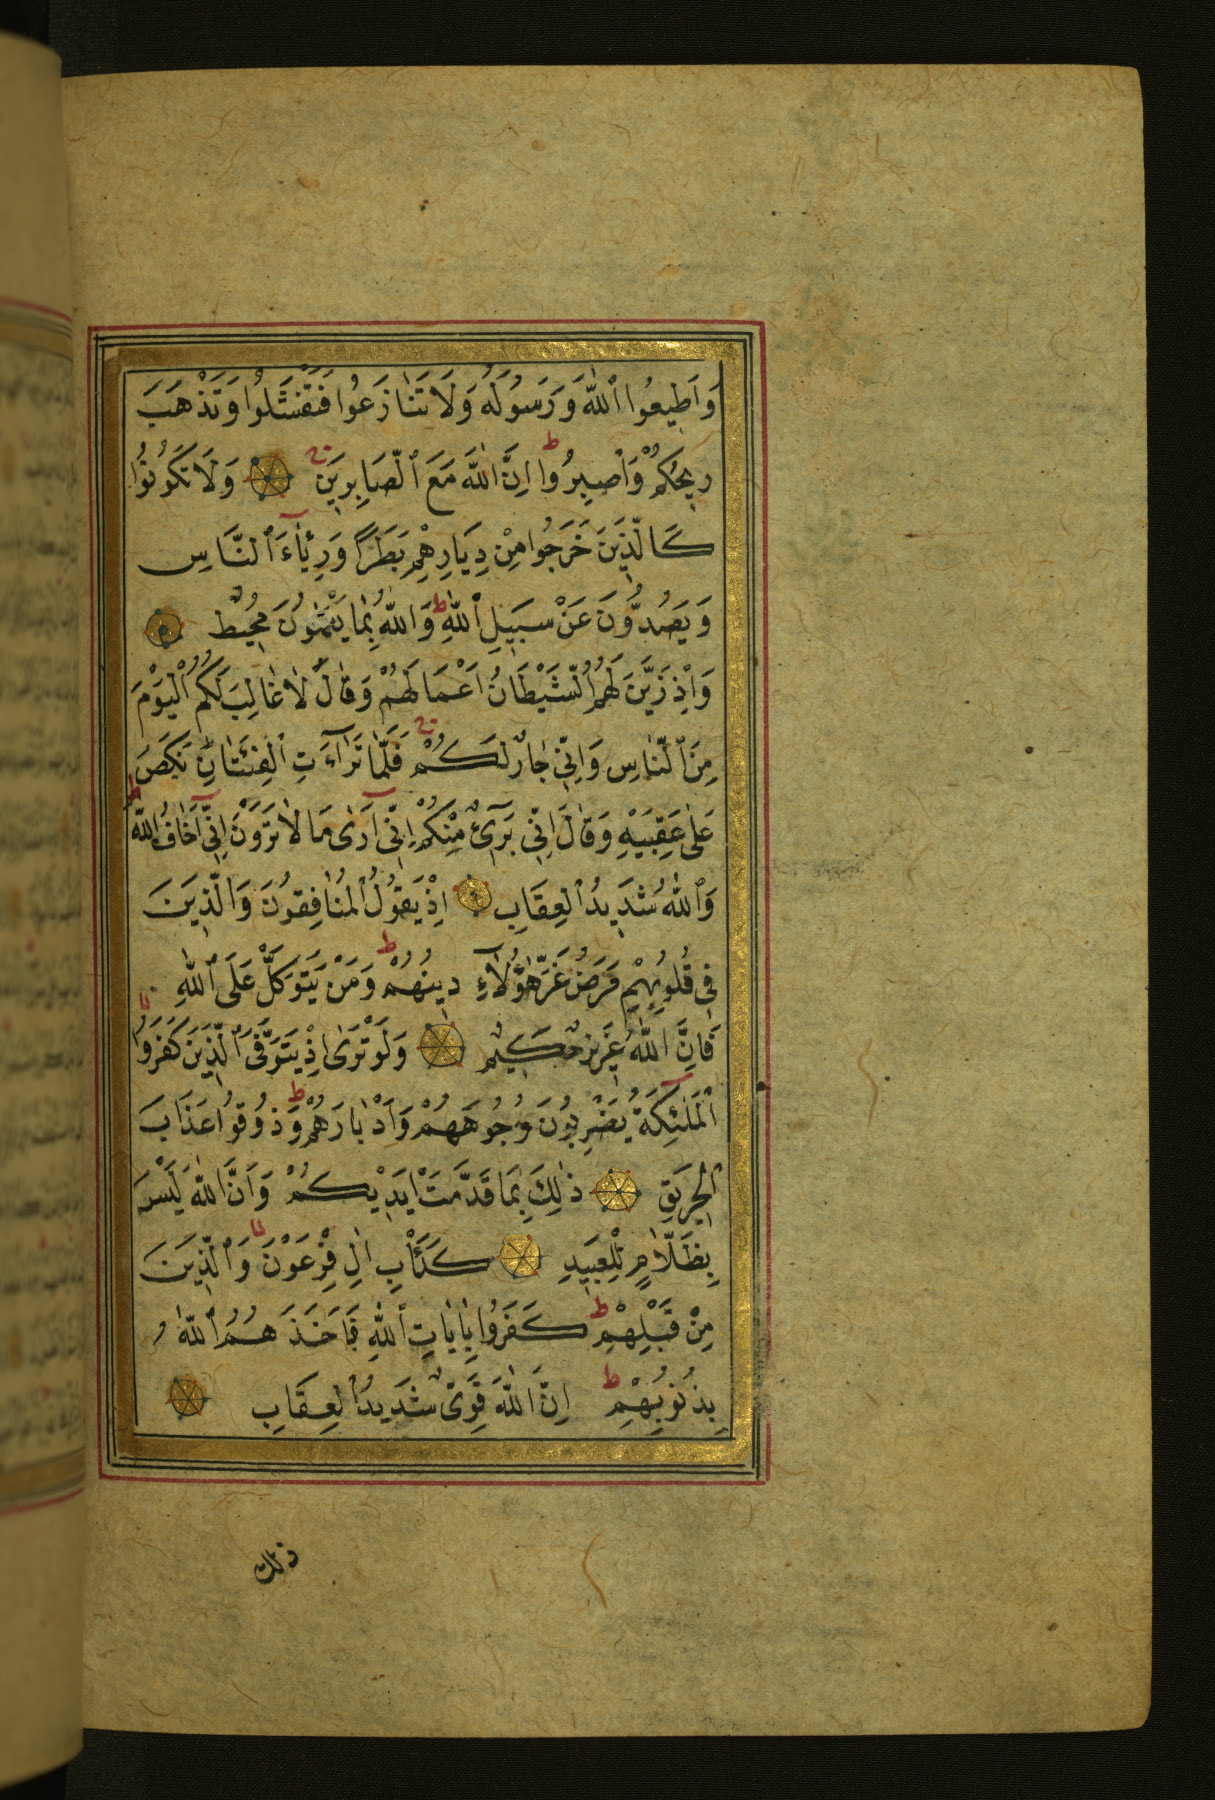 وَاَطِيعُوا ٱللّٰهَ وَرَسُولَهُ وَلَا تَنَازَعُوا فَتَفْشَلُوا وَتَذْهَبَ
رِيحُكُمْ وَٱصْبِرُوا ط اِنَّ اللّٰهَ مَعَ ٱلصَّابِرِينَ ج وَلَا تَكُونُوا
كَالَّذِينَ خَرَجُوا مِنْ دِيَارِهِمْ بَطَرًا وَرِئَاءَ ٱلنَّاسِ
وَيَصُدُّونَ عَنْ سَبِيلِ ٱللّٰهِ ط وَاللّٰهُ بِمَا يَعْمَلُونَ مُحِيطٌ
وَاِذْ زَيَّنَ لَهُمُ ٱلشَّيْطَانُ اَعْمَالَهُمْ وَقَالَ لَا غَالِبَ لَكُمُ ٱلْيَوْمَ
مِنَ ٱلنَّاسِ وَاِنِّي جَارٌ لَكُمْ ج فَلَمَّا تَرَآءَتِ ٱلْفِئَتَانِ نَكَصَ
عَلٰى عَقِبَيْهِ وَقَالَ اِنِّي بَرِيٓءٌ مِنْكُمْ اِنِّيٓ اَرٰى مَا لَا تَرَوْنَ اِنِّيٓ اَخَافُ اللّٰهَ ط
وَٱللّٰهُ شَدِيدُ ٱلْعِقَابِ اِذْ يَقُولُ ٱلْمُنَافِقُونَ وَالَّذِينَ
فِي قُلُوبِهِمْ مَرَضٌ غَرَّ هٰٓؤُلَآءِ دِينُهُمْ ط وَمَنْ يَتَوَكَّلْ عَلَى ٱللّٰهِ
فَاِنَّ اللّٰهَ عَزِيزٌ حَكِيمٌ وَلَوْ تَرٰى اِذْ يَتَوَفَّى ٱلَّذِينَ كَفَرُوا لا
ٱلْمَلٰٓئِكَةُ يَضْرِبُونَ وُجُوهَهُمْ وَاَدْبَارَهُمْ ط وَذُوقُوا عَذَابَ
ٱلْحَرِيقِ ذٰلِكَ بِمَا قَدَّمَتْ اَيْدِيكُمْ وَاَنَّ اللّٰهَ لَيْسَ
بِظَلَّامٍ لِلْعَبِيدِ كَدَأْبِ اٰلِ فِرْعَوْنَ لا وَٱلَّذِينَ
مِنْ قَبْلِهِمْ ط كَفَرُوا بِاٰيَاتِ ٱللّٰهِ فَاَخَذَهُمُ ٱللّٰهُ
بِذُنُوبِهِمْ ط اِنَّ اللّٰهَ قَوِيٌّ شَدِيدُ ٱلْعِقَابِ
ذلك